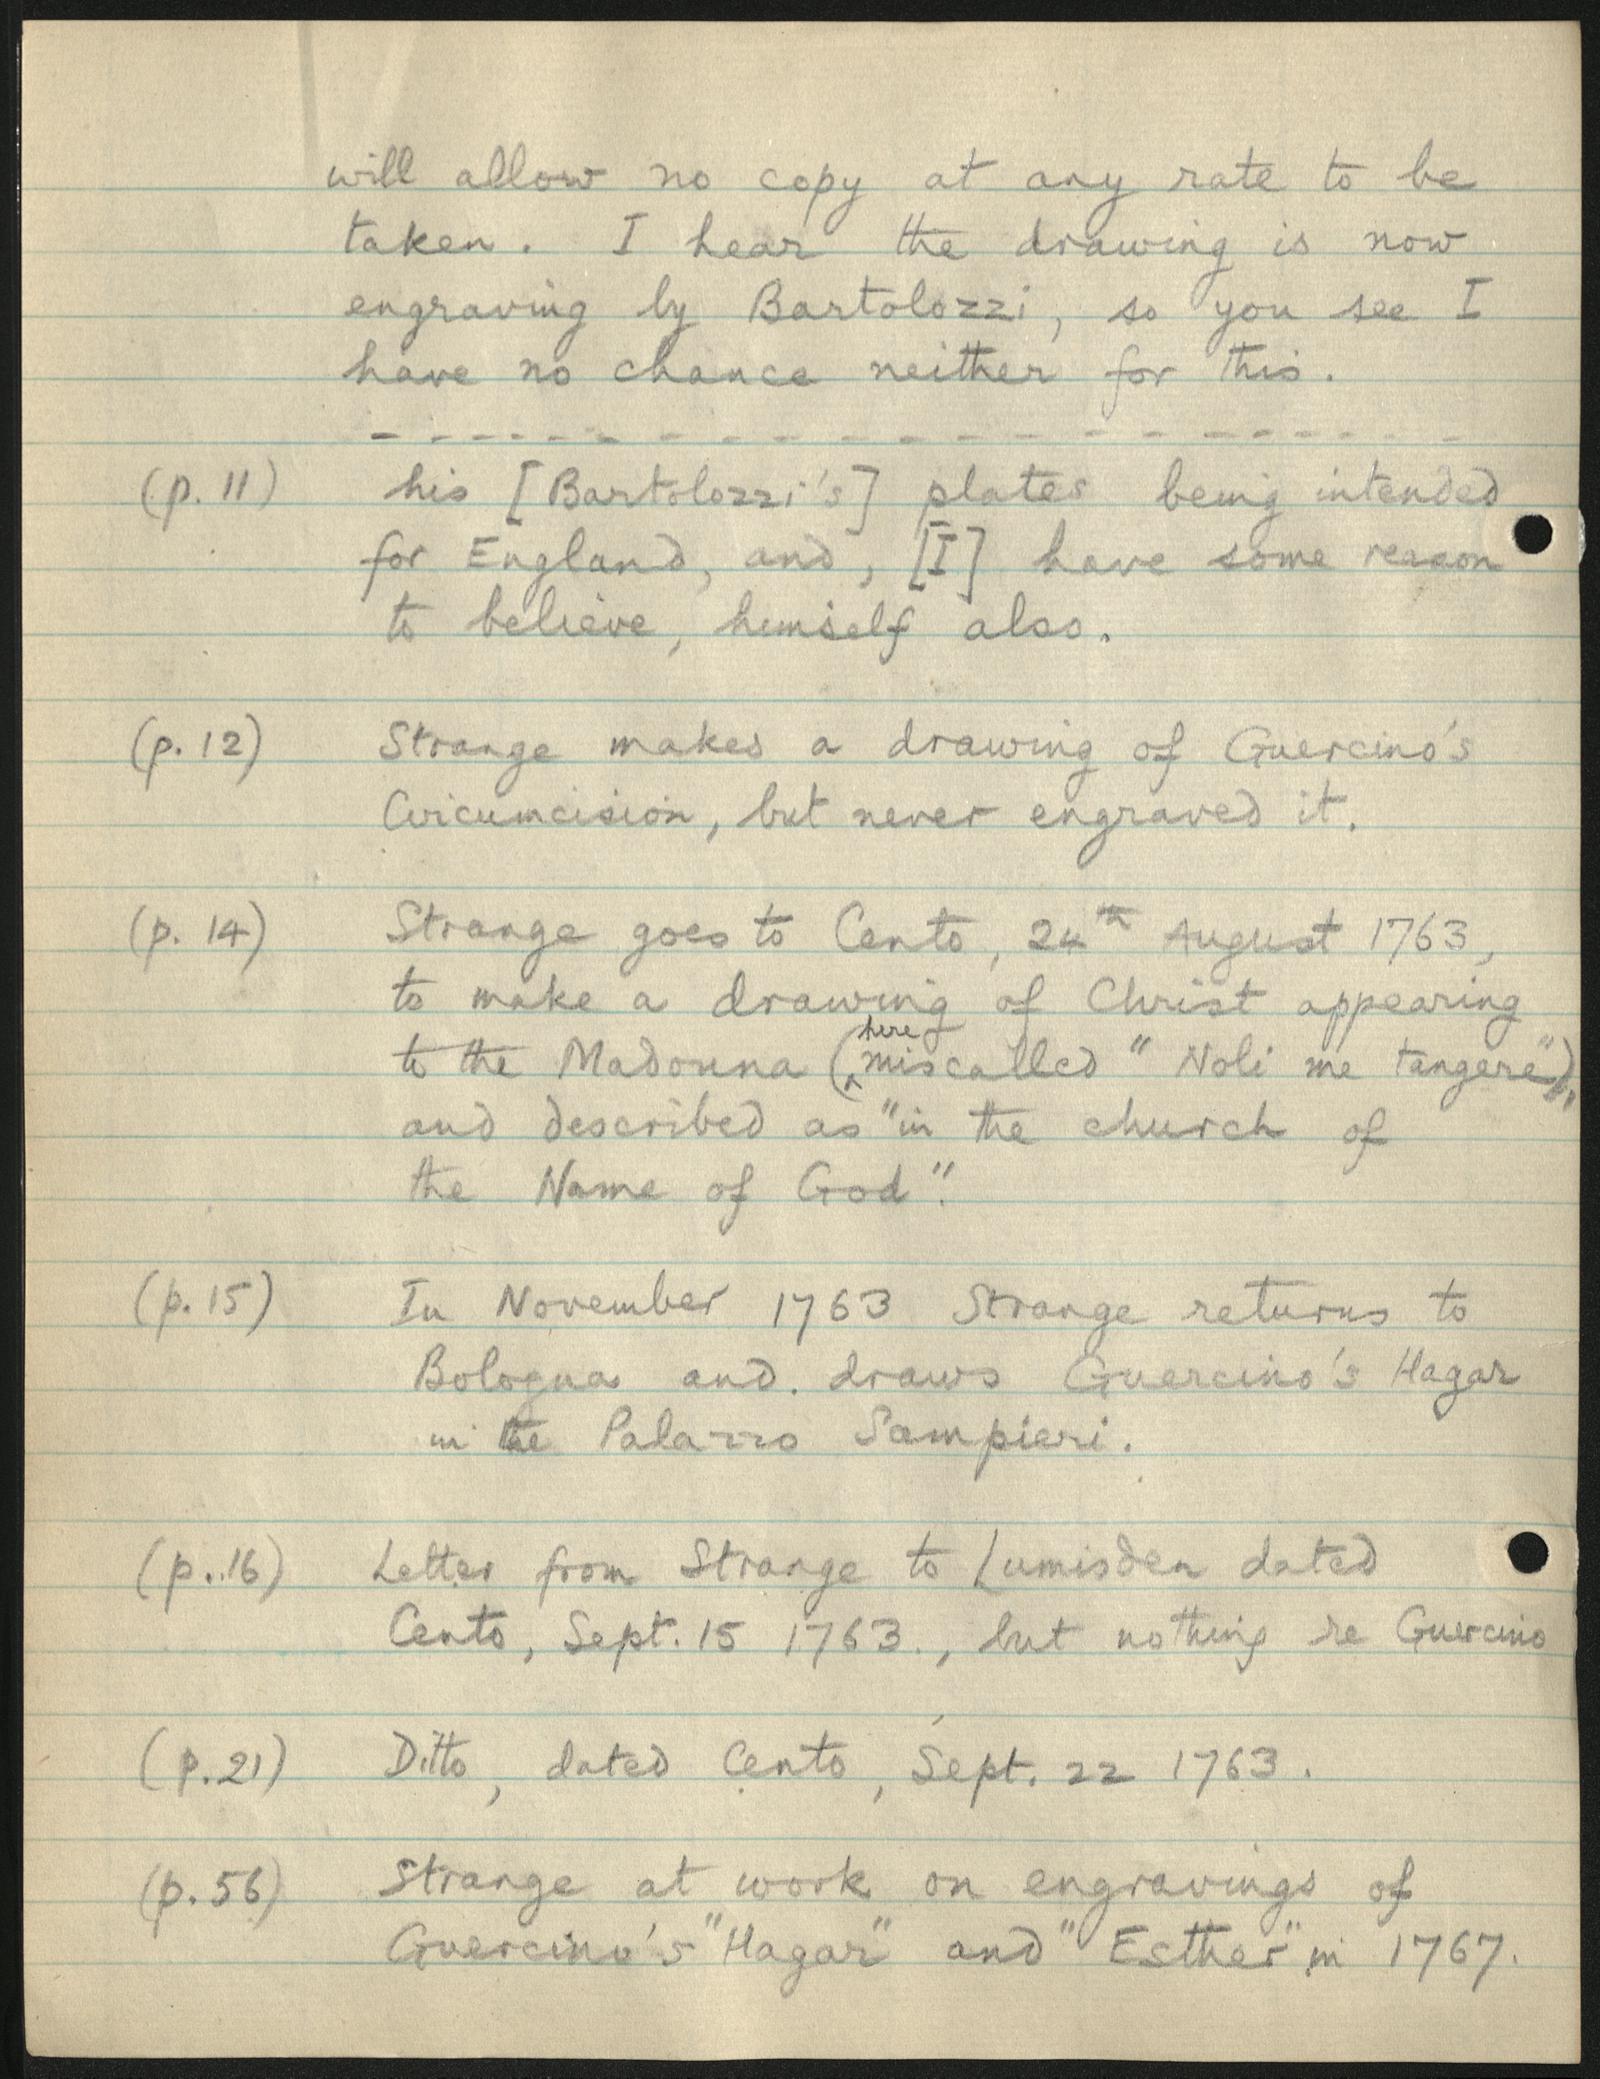 will allow no copy at any rate to be
taken. I hear the drawing is now
engraving by Bartolozzi, so you see I
have no chance neither for this.
(p. 11) his [Bartolozzi's] plates being intended
for England, and, [I] have some reason
to believe, himself also.
(p. 12) Strange makes a drawing of Guercino's
Circumcision, but never engraved it.
(p. 14) Strange goes to Cento, 24th August 1763,
to make a drawing of Christ appearing
to the Madonna (here miscalled "Noli me tangere")
and described as "in the church of
the Name of God".
(p. 15) In November 1763 Strange returns to
Bologna and draws Guercino's Hagar
in the Palazzo Sampieri.
(p. 16) Letter from Strange to Lumisden dated
Cento, Sept. 15 1763., but nothing re Guercino
(p. 21) Ditto, dated Cento, Sept. 22 1763.
(p. 56) Strange at work on engravings of
Guercino's "Hagar" and "Esther" in 1767.